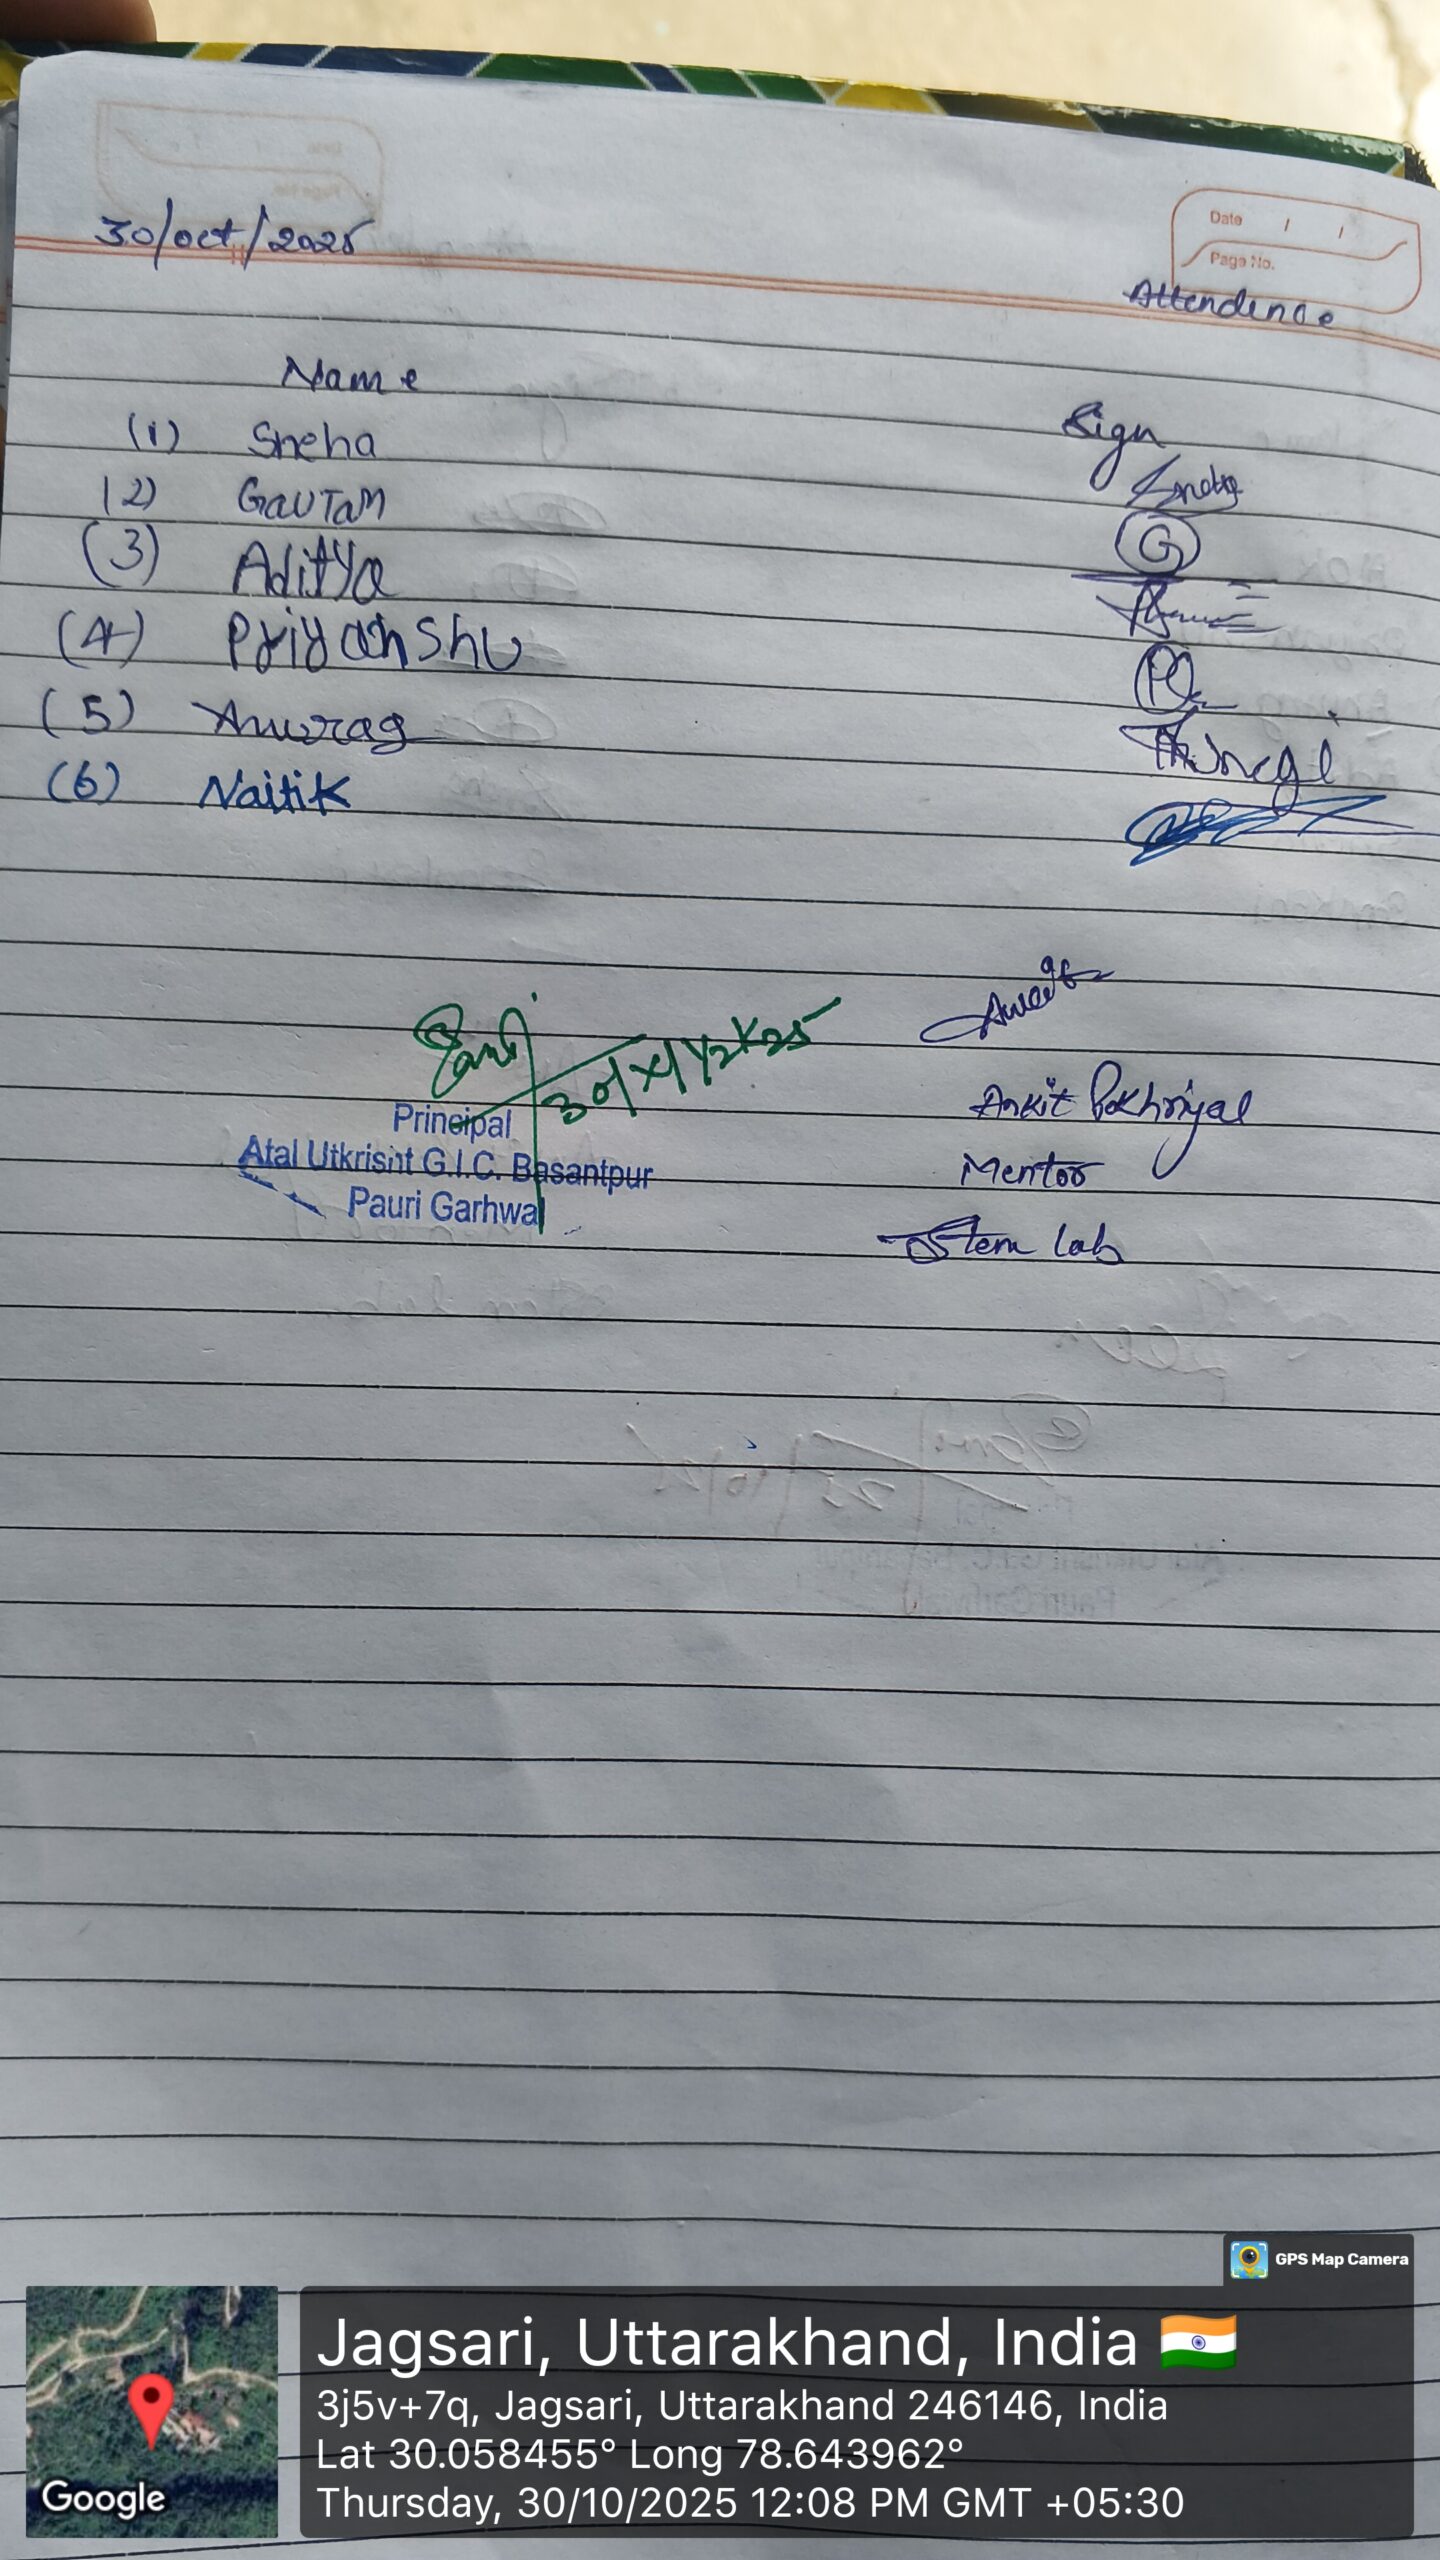 Date / /
Page No.
30/oct/2025
Attendence
Name
Sign
(1) Sneha
(2) GauTam
G
(3) Aditya
(4) Priyanshu
(5) Anurag
(6) Naitik
30/X/Y2K25
Principal
Atal Utkrisht G.I.C. Basantpur
Pauri Garhwal
Ankit Pokhriyal
Mentor
Stem Lab
GPS Map Camera
Jagsari, Uttarakhand, India
3j5v+7q, Jagsari, Uttarakhand 246146, India
Lat 30.058455° Long 78.643962°
Thursday, 30/10/2025 12:08 PM GMT +05:30
Google